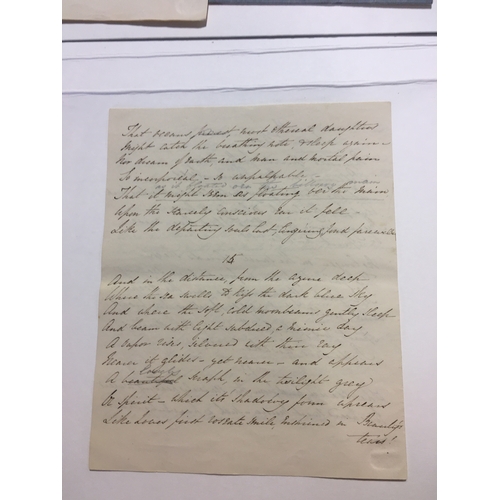 That oceans fairest, most ethereal daughter
Might catch the breathing note, & sleep again –
Nor dream of earth and man and mortal pain
So immaterial – so unpalpable –
That it might seem as floating o'er the main
Upon the scarcely conscious ear it fell –
Like the departing souls last, lingering fond farewell
15
And in the distance, from the azure deep
Where the sea swells to kiss the dark blue sky
And where the soft, cold moonbeams gently sleep
And beam with light subdued, a mimic day
A vapor rises, silvered with their ray
Nearer it glides – yet nearer – and appears
A beautiful lovely shape, in the twilight grey
Or spirit – which its shadowy form uprears
Like Loves first roseate smile, enshrined in Beauty's
tears!